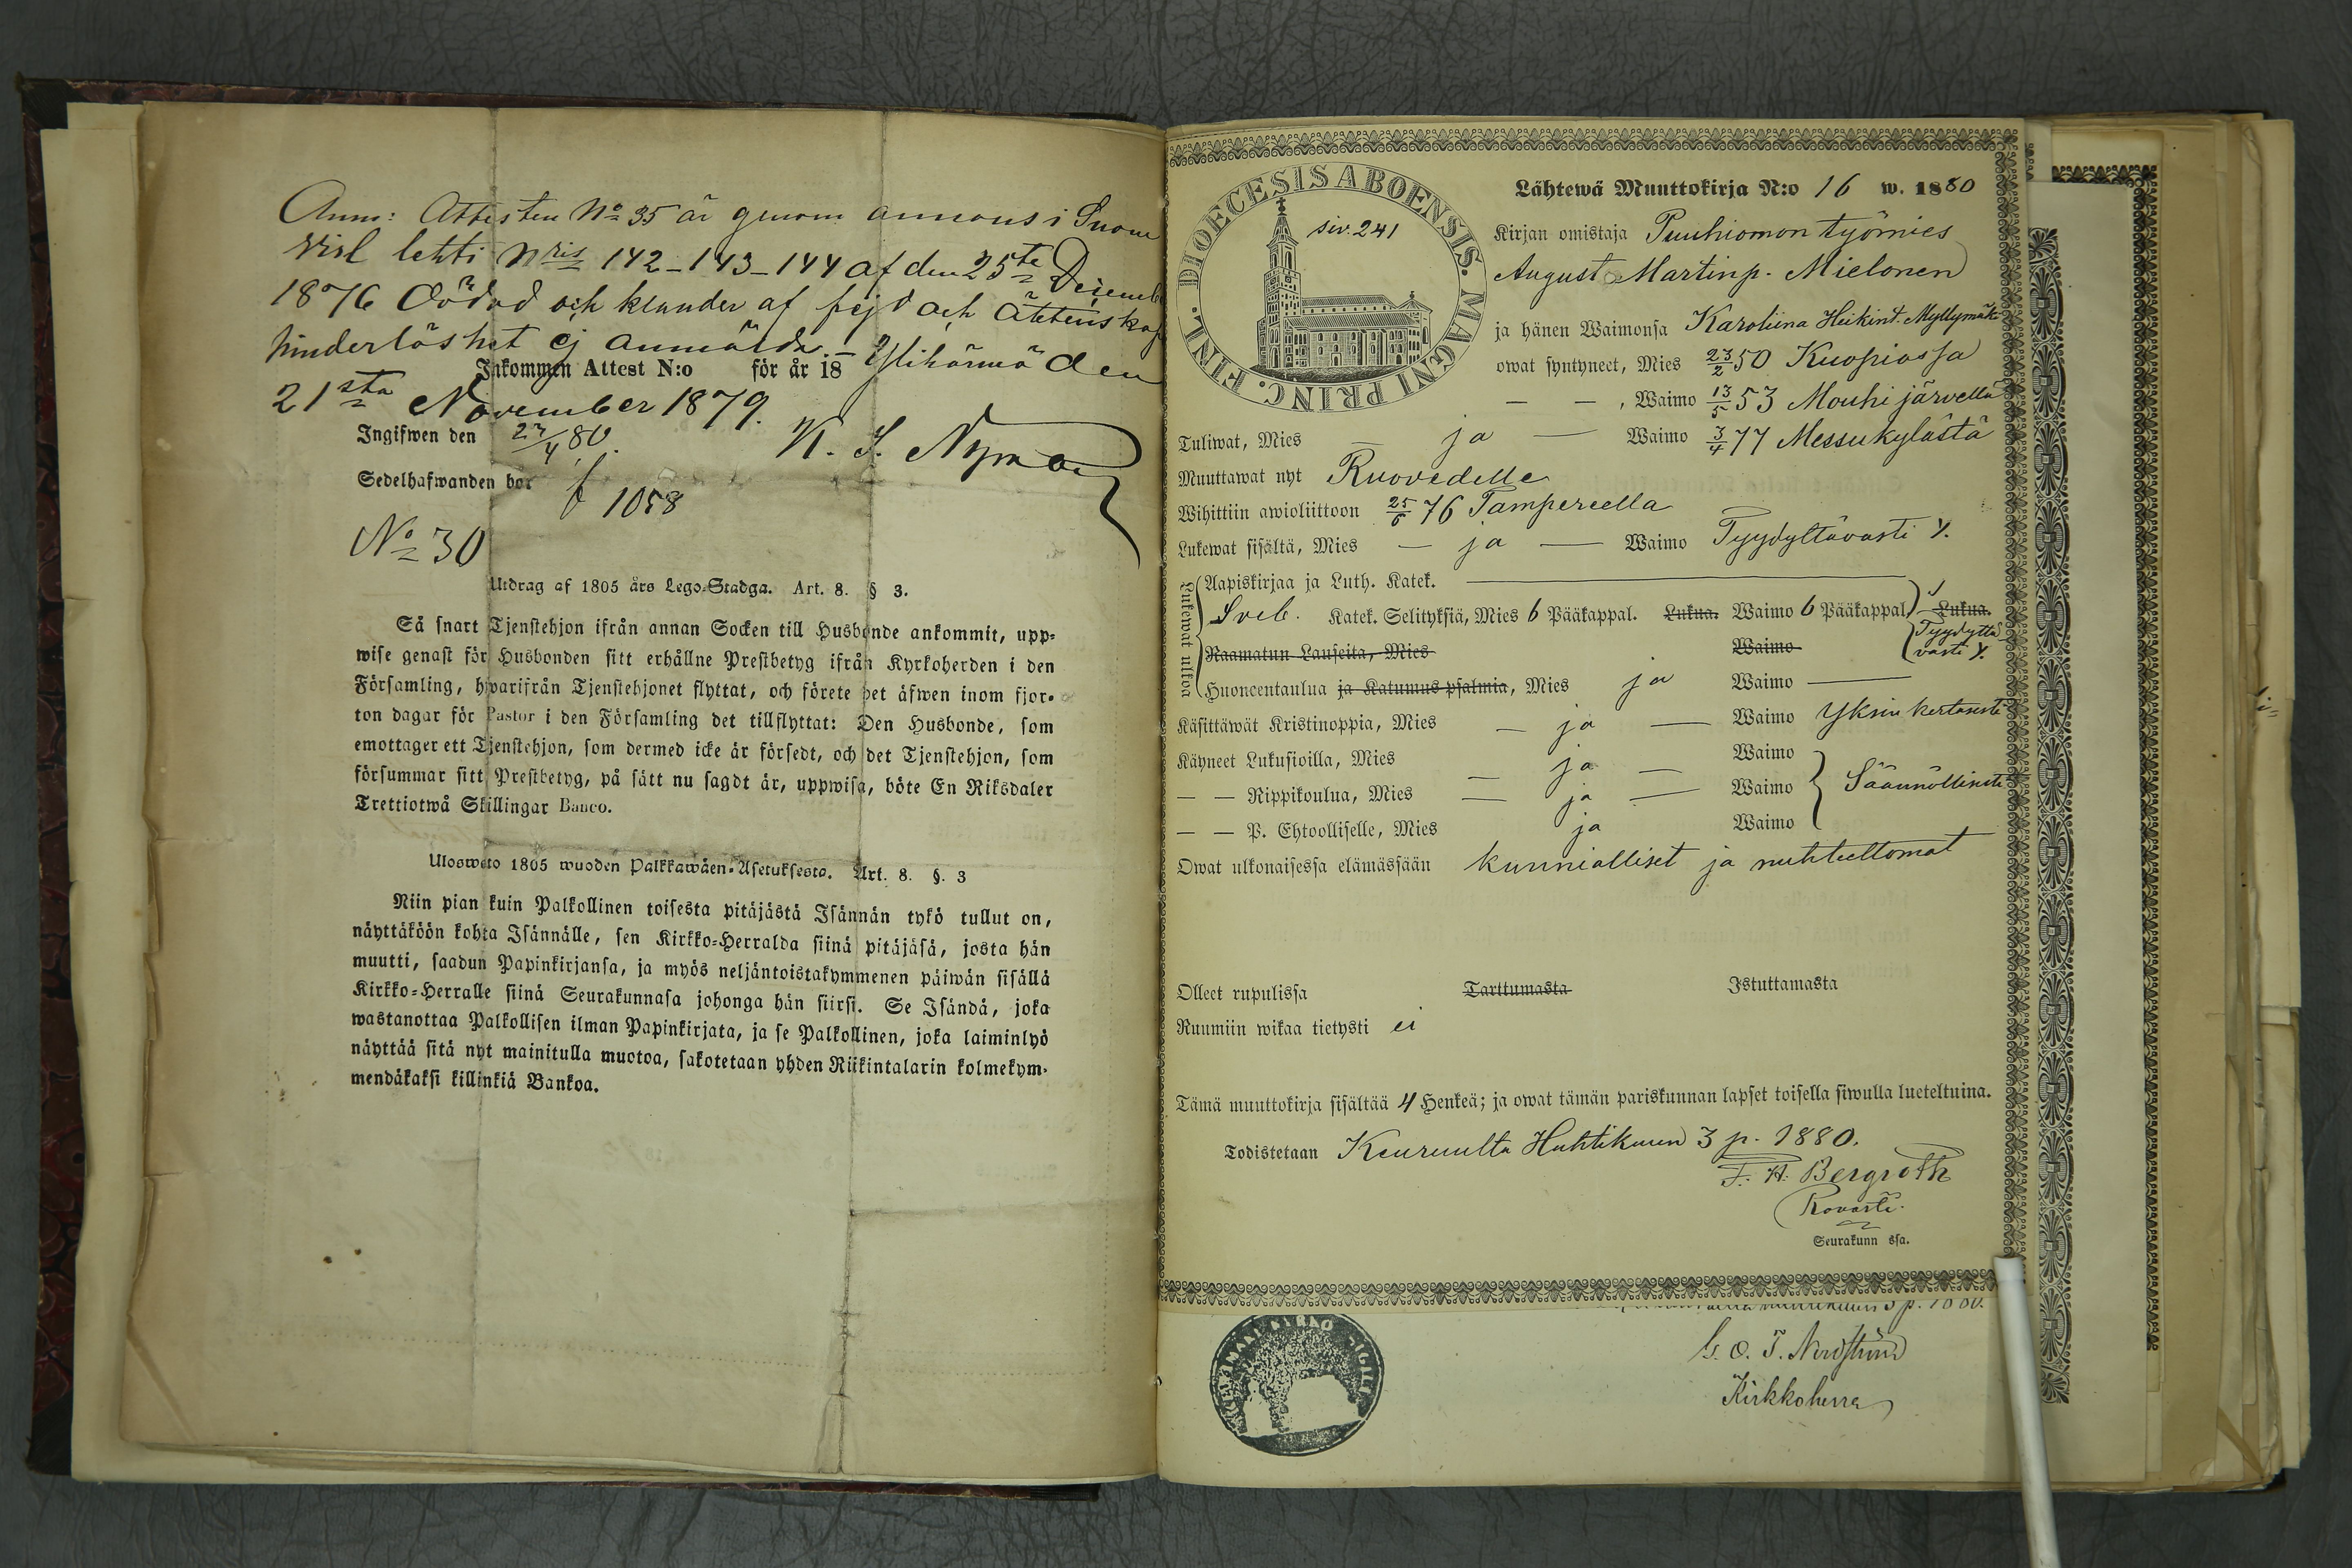 Anm: Attesten No 35 är genom annons i Suome
Virl lehti Nris 142-143-144 af den 25te Decemb
1876 dödad och klander af fejd och äktenskaps
hinderlöshet ej anmäldt. – Ylihärmä den
Inkommen Attest N:o för år 18
21sta November 1879.
K. J. Nyman
Ingifwen den 27/4 80.
Sedelhafwanden bor f 1058
No 30
Utdrag af 1805 års Lego-Stadga. Art. 8. § 3.
Så snart Tjenstehjon ifrån annan Socken till Husbonde ankommit, upp-
wise genast för Husbonden sitt erhållne Prestbetyg ifrån Kyrkoherden i den
Församling, hwarifrån Tjenstehjonet flyttat, och förete det äfwen inom fjor-
ton dagar för Pastor i den Församling det tillflyttat: Den Husbonde, som
emottager ett Tjenstehjon, som dermed icke är försedt, och det Tjenstehjon, som
försummar sitt Prestbetyg, på sätt nu sagdt är, uppwisa, böte En Riksdaler
Trettiotwå Skillingar Banco.
Ulosweto 1805 wuoden Palkkawäen-Asetuksesta. Art. 8. §. 3
Niin pian kuin Palkollinen toisesta pitäjästä Isännän tykö tullut on,
näyttäköön kohta Isännälle, sen Kirkko-Herralda siinä pitäjäsä, josta hän
muutti, saadun Papinkirjansa, ja myös neljäntoistakymmenen päiwän sisällä
Kirkko-Herralle siinä Seurakunnasa johonga hän siirsi. Se Isändä, joka
wastanottaa Palkollisen ilman Papinkirjata, ja se Palkollinen, joka laiminlyö
näyttää sitä nyt mainitulla muotoa, sakotetaan yhden Riikintalarin kolmekym-
mendäkaksi killinkiä Bankoa.
DIOECESIS ABOENSIS. MAGNI PRINC. FINL.
siv. 241
Lähtewä Muuttokirja N:o 16 w. 1880
Kirjan omistaja Puuhiomon työmies
August Martinp. Mielonen
ja hänen Waimonsa Karoliina Heikint. Myllymäki
owat syntyneet, Mies 23/2 50 Kuopiossa
— — , Waimo 13/5 53 Mouhijärvellä
Tuliwat, Mies — ja — Waimo 3/4 77 Messukylästä
Muuttawat nyt Ruovedelle
Wihittiin awioliittoon 25/6 76 Tampereella
Lukewat sisältä, Mies — ja — Waimo Tyydyttävästi y.
Lukewat ulkoa
Aapiskirjaa ja Luth. Katek.
Sveb. Katek. Selityksiä, Mies 6 Pääkappal. Lukua. Waimo 6 Pääkappal. Lukua.
Tyydyttä-
västi y.
Raamatun Lauseita, Mies Waimo
Huoneentaulua ja Katumus psalmia, Mies ja Waimo —
Käsittäwät Kristinoppia, Mies — ja — Waimo Yksinkertaisesti
Käyneet Lukusioilla, Mies — ja — Waimo
— — Rippikoulua, Mies — ja — Waimo Säännöllisesti
— — P. Ehtoolliselle, Mies ja Waimo
Owat ulkonaisessa elämässään kunnialliset ja nuhteettomat
Olleet rupulissa Tarttumasta Istuttamasta
Ruumiin wikaa tietysti ei
Tämä muuttokirja sisältää 4 Henkeä; ja owat tämän pariskunnan lapset toisella siwulla lueteltuina.
Todistetaan Keuruulta Huhtikuun 3 p. 1880.
F. H. Bergroth
Rovasti.
Seurakunn ssa.
G. O. T. Nordström
Kirkkoherra